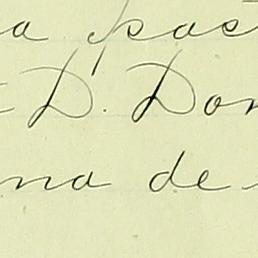 a pas
D. Don
na de